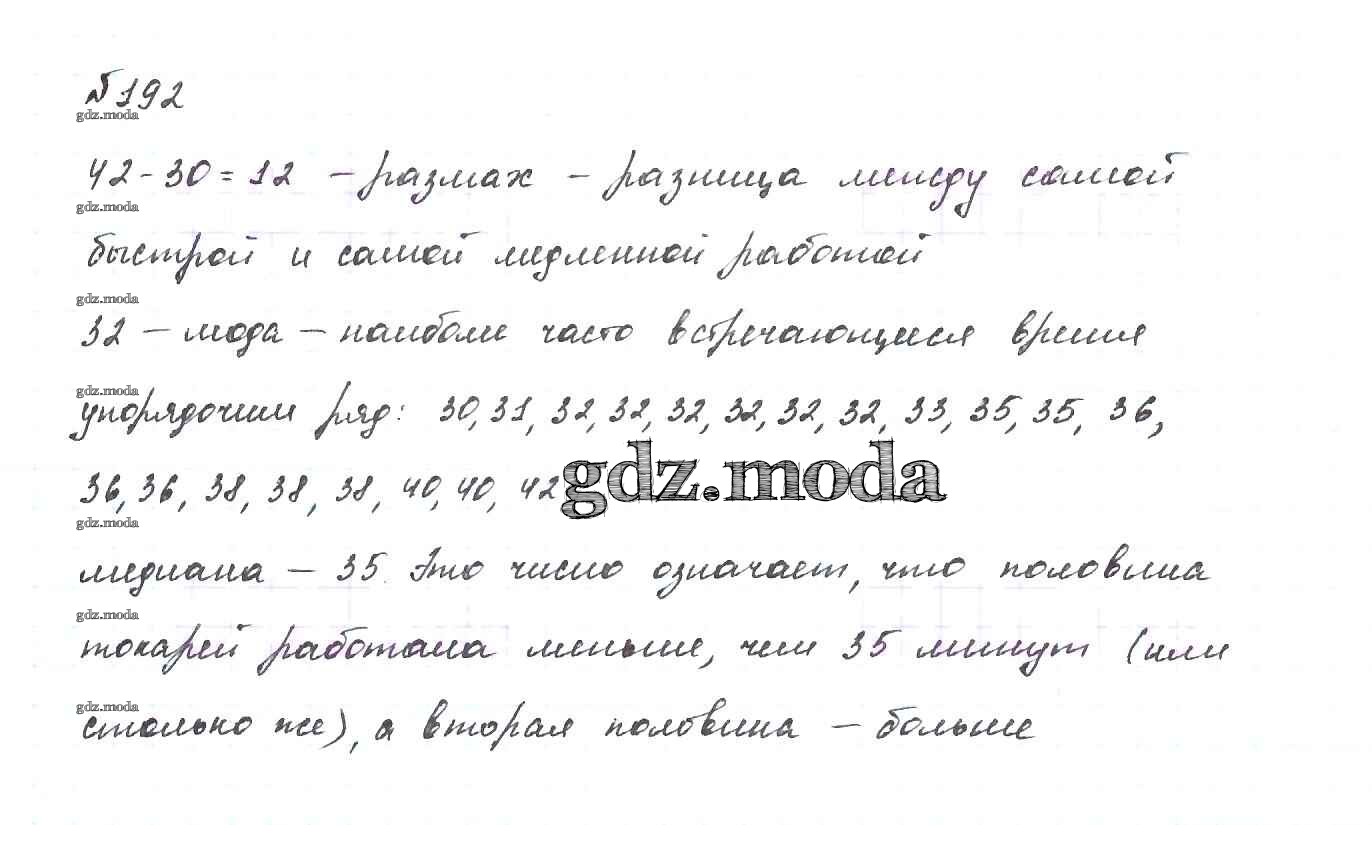 №192
gdz.moda
42-30=12 - размах - разница между самой
gdz.moda
быстрой и самой медленной работой
gdz.moda
32 - мода - наиболее часто встречающееся время
gdz.moda
упорядочим ряд: 30, 31, 32, 32, 32, 32, 32, 32, 33, 35, 35, 36,
36, 36, 38, 38, 38, 40, 40, 42
gdz.moda
gdz.moda
медиана - 35. Это число означает, что половина
gdz.moda
токарей работала меньше, чем 35 минут (или
gdz.moda
столько же), а вторая половина - больше